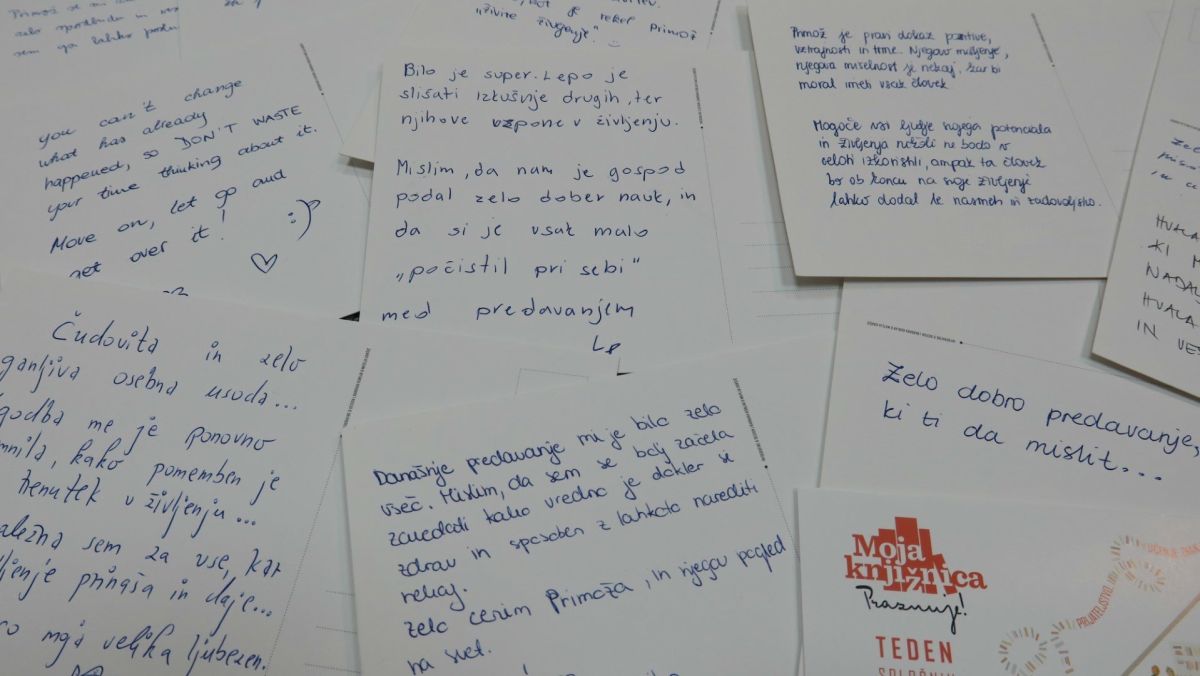 Primož
zelo
sem ga lahko
je rekel Primož
"živite življenje".
you can't change
what has already
happened, so DON'T WASTE
your time thinking about it.
Move on, let go and
get over it! :)
Bilo je super. Lepo je
slišati izkušnje drugih, ter
njihove vzpone v življenju.
Mislim, da nam je gospod
podal zelo dober nauk, in
da si je vsak malo
„počistil pri sebi"
med predavanjem
Lp
Primož je pravi dokaz pozitive,
vztrajnosti in trme. Njegovo mišljenje,
njegova miselnost je nekaj, kar bi
moral imeti vsak človek.
Mogoče vsi ljudje svojega potenciala
in življenja nikoli ne bodo v
celoti izkoristili, ampak ta človek
bo ob koncu na svoje življenje
lahko dodal le nasmeh in zadovoljstvo.
HVALA
KI
HVALA
IN
Čudovita in zelo
ganljiva osebna usoda...
godba me je ponovno
mnila, kako pomemben je
trenutek v življenju...
aležna sem za vse, kar
ljenje prinaša in daje...
ro moja velika ljubezen.
Današnje predavanje mi je bilo zelo
všeč. Mislim, da sem se bolj začela
zavedati kako vredno je dokler si
zdrav in sposoben z lahkoto narediti
nekaj.
Zelo cenim Primoža, in njegov pogled
na svet.
Zelo dobro predavanje,
ki ti da mislit...
Moja
knjižnica
Praznuje!
TEDEN
PRIJATELJSTVO
UČENJE